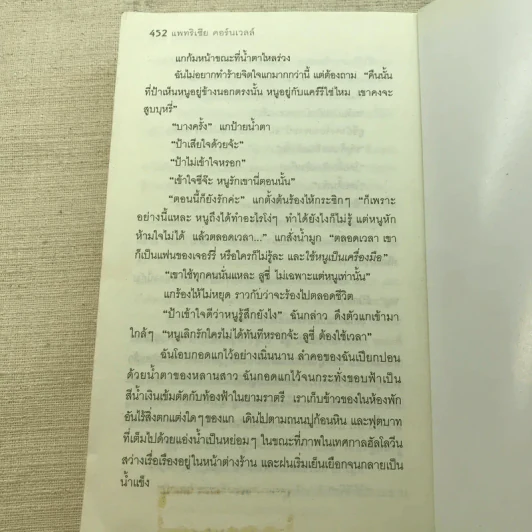 452 แพทริเซีย คอร์นเวลล์
แกก้มหน้าขณะที่น้ำตาไหลร่วง
ฉันไม่อยากทำร้ายจิตใจแกมากกว่านี้ แต่ต้องถาม “คืนนั้น
ที่ป้าเห็นหนูอยู่ข้างนอกตรงนั้น หนูอยู่กับแคร์รีใช่ไหม เขาคงจะ
สูบบุหรี่”
“บางครั้ง” แกป้ายน้ำตา
“ป้าเสียใจด้วยจ้ะ”
“ป้าไม่เข้าใจหรอก”
“เข้าใจซีจ๊ะ หนูรักเขานี่ตอนนั้น”
“ตอนนี้ก็ยังรักค่ะ” แกตั้งต้นร้องไห้กระซิกๆ “ก็เพราะ
อย่างนี้แหละ หนูถึงได้ทำอะไรโง่ๆ ทำได้ยังไงก็ไม่รู้ แต่หนูหัก
ห้ามใจไม่ได้ แล้วตลอดเวลา...” แกสั่งน้ำมูก “ตลอดเวลา เขา
ก็เป็นแฟนของเจอร์รี่ หรือใครก็ไม่รู้ละ และใช้หนูเป็นเครื่องมือ”
“เขาใช้ทุกคนนั่นแหละ ลูซี่ ไม่เฉพาะแต่หนูเท่านั้น”
แกร้องไห้ไม่หยุด ราวกับว่าจะร้องไปตลอดชีวิต
“ป้าเข้าใจดีว่าหนูรู้สึกยังไง” ฉันกล่าว ดึงตัวแกเข้ามา
ใกล้ๆ “หนูเลิกรักใครไม่ได้ทันทีหรอกจ้ะ ลูซี่ ต้องใช้เวลา”
ฉันโอบกอดแกไว้อย่างเนิ่นนาน ลำคอของฉันเปียกปอน
ด้วยน้ำตาของหลานสาว ฉันกอดแกไว้จนกระทั่งขอบฟ้าเป็น
สีน้ำเงินเข้มตัดกับท้องฟ้าในยามราตรี เราเก็บข้าวของในห้องพัก
อันไร้สิ่งตกแต่งใดๆ ของแก เดินไปตามถนนปูก้อนหิน และฟุตบาท
ที่เต็มไปด้วยแอ่งน้ำเป็นหย่อมๆ ในขณะที่ภาพในเทศกาลฮัลโลวีน
สว่างเรื่อเรืองอยู่ในหน้าต่างร้าน และฝนเริ่มเย็นเยือกจนกลายเป็น
น้ำแข็ง